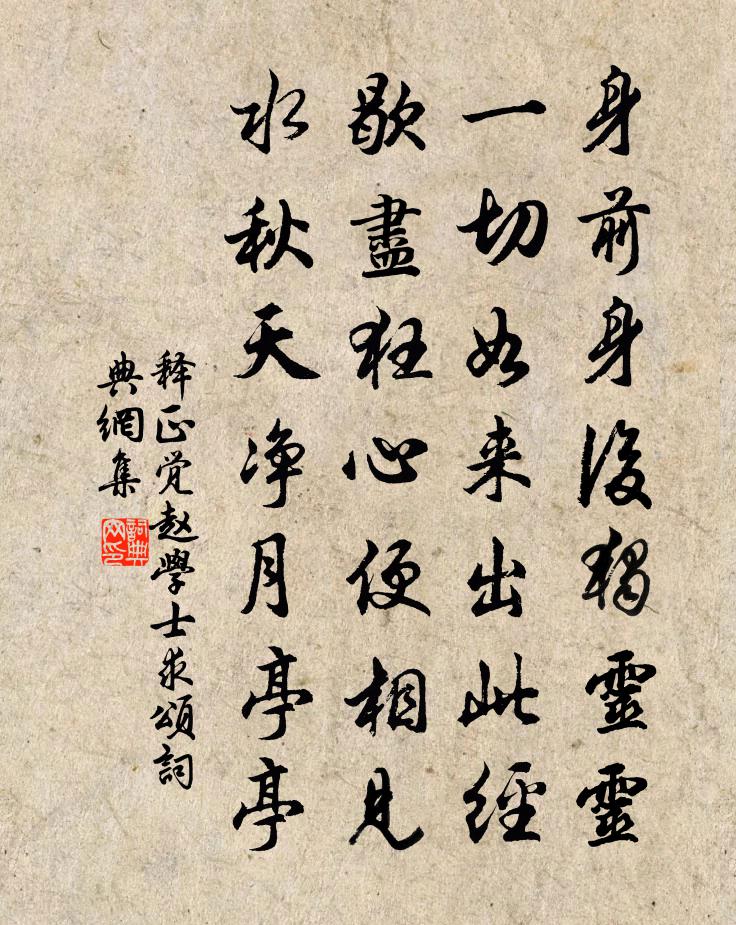 身前身後獨靈靈
一切如来出此經
歇盡狂心便相見
水秋天淨月亭亭
释正觉赵學士求頌詞
典網集
詞典网印